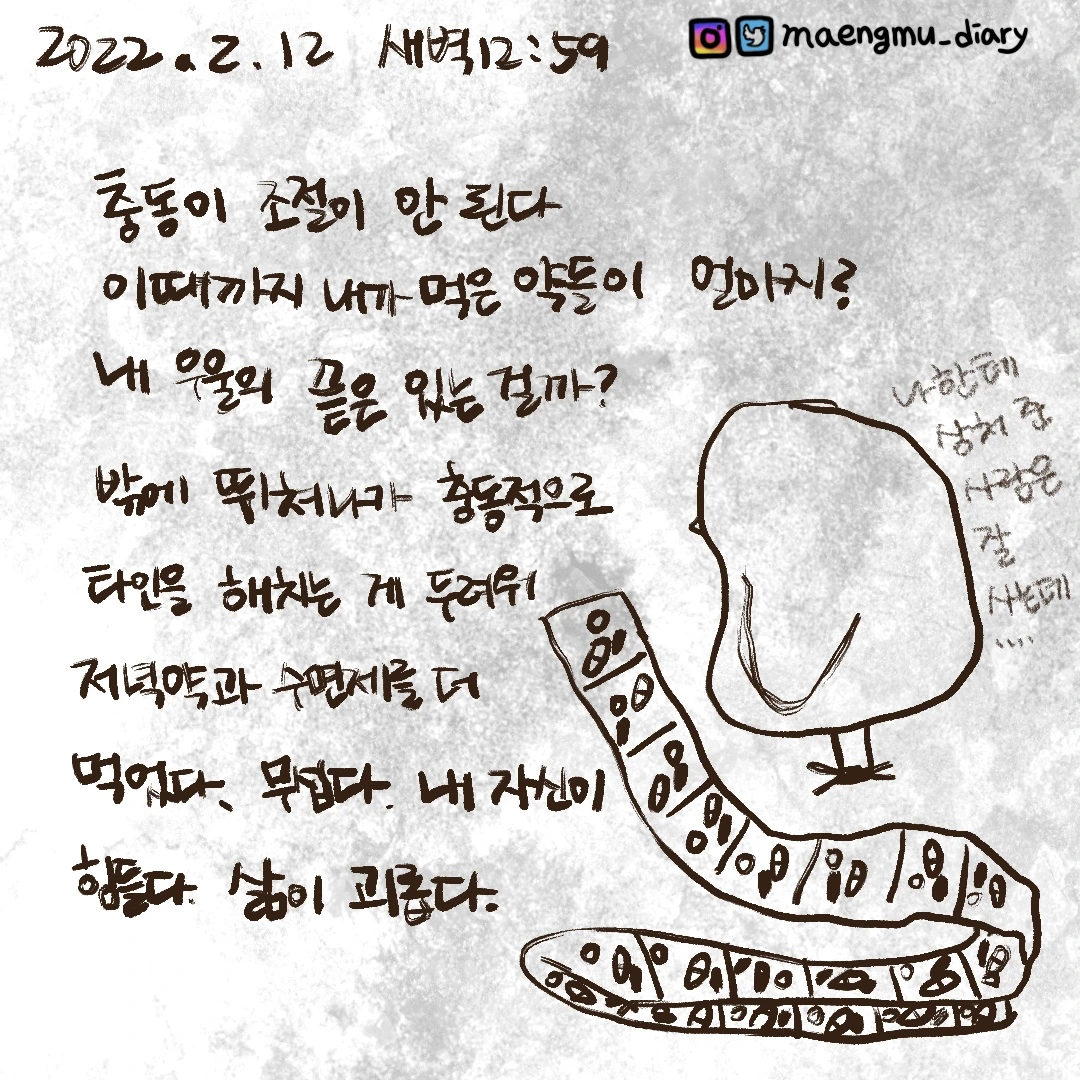 2022.2.12 새벽12:59
maengmu_diary
충동이 조절이 안 된다
이때까지 내가 먹은 약들이 얼마지?
내 우울의 끝은 있는걸까?
밖에 뛰쳐나가 충동적으로
타인을 해치는 게 두려워
저녁약과 수면제를 더
먹었다. 무섭다. 내 자신이
힘들다. 삶이 괴롭다.
나한테
상처 준
사람은
잘
사는데
....